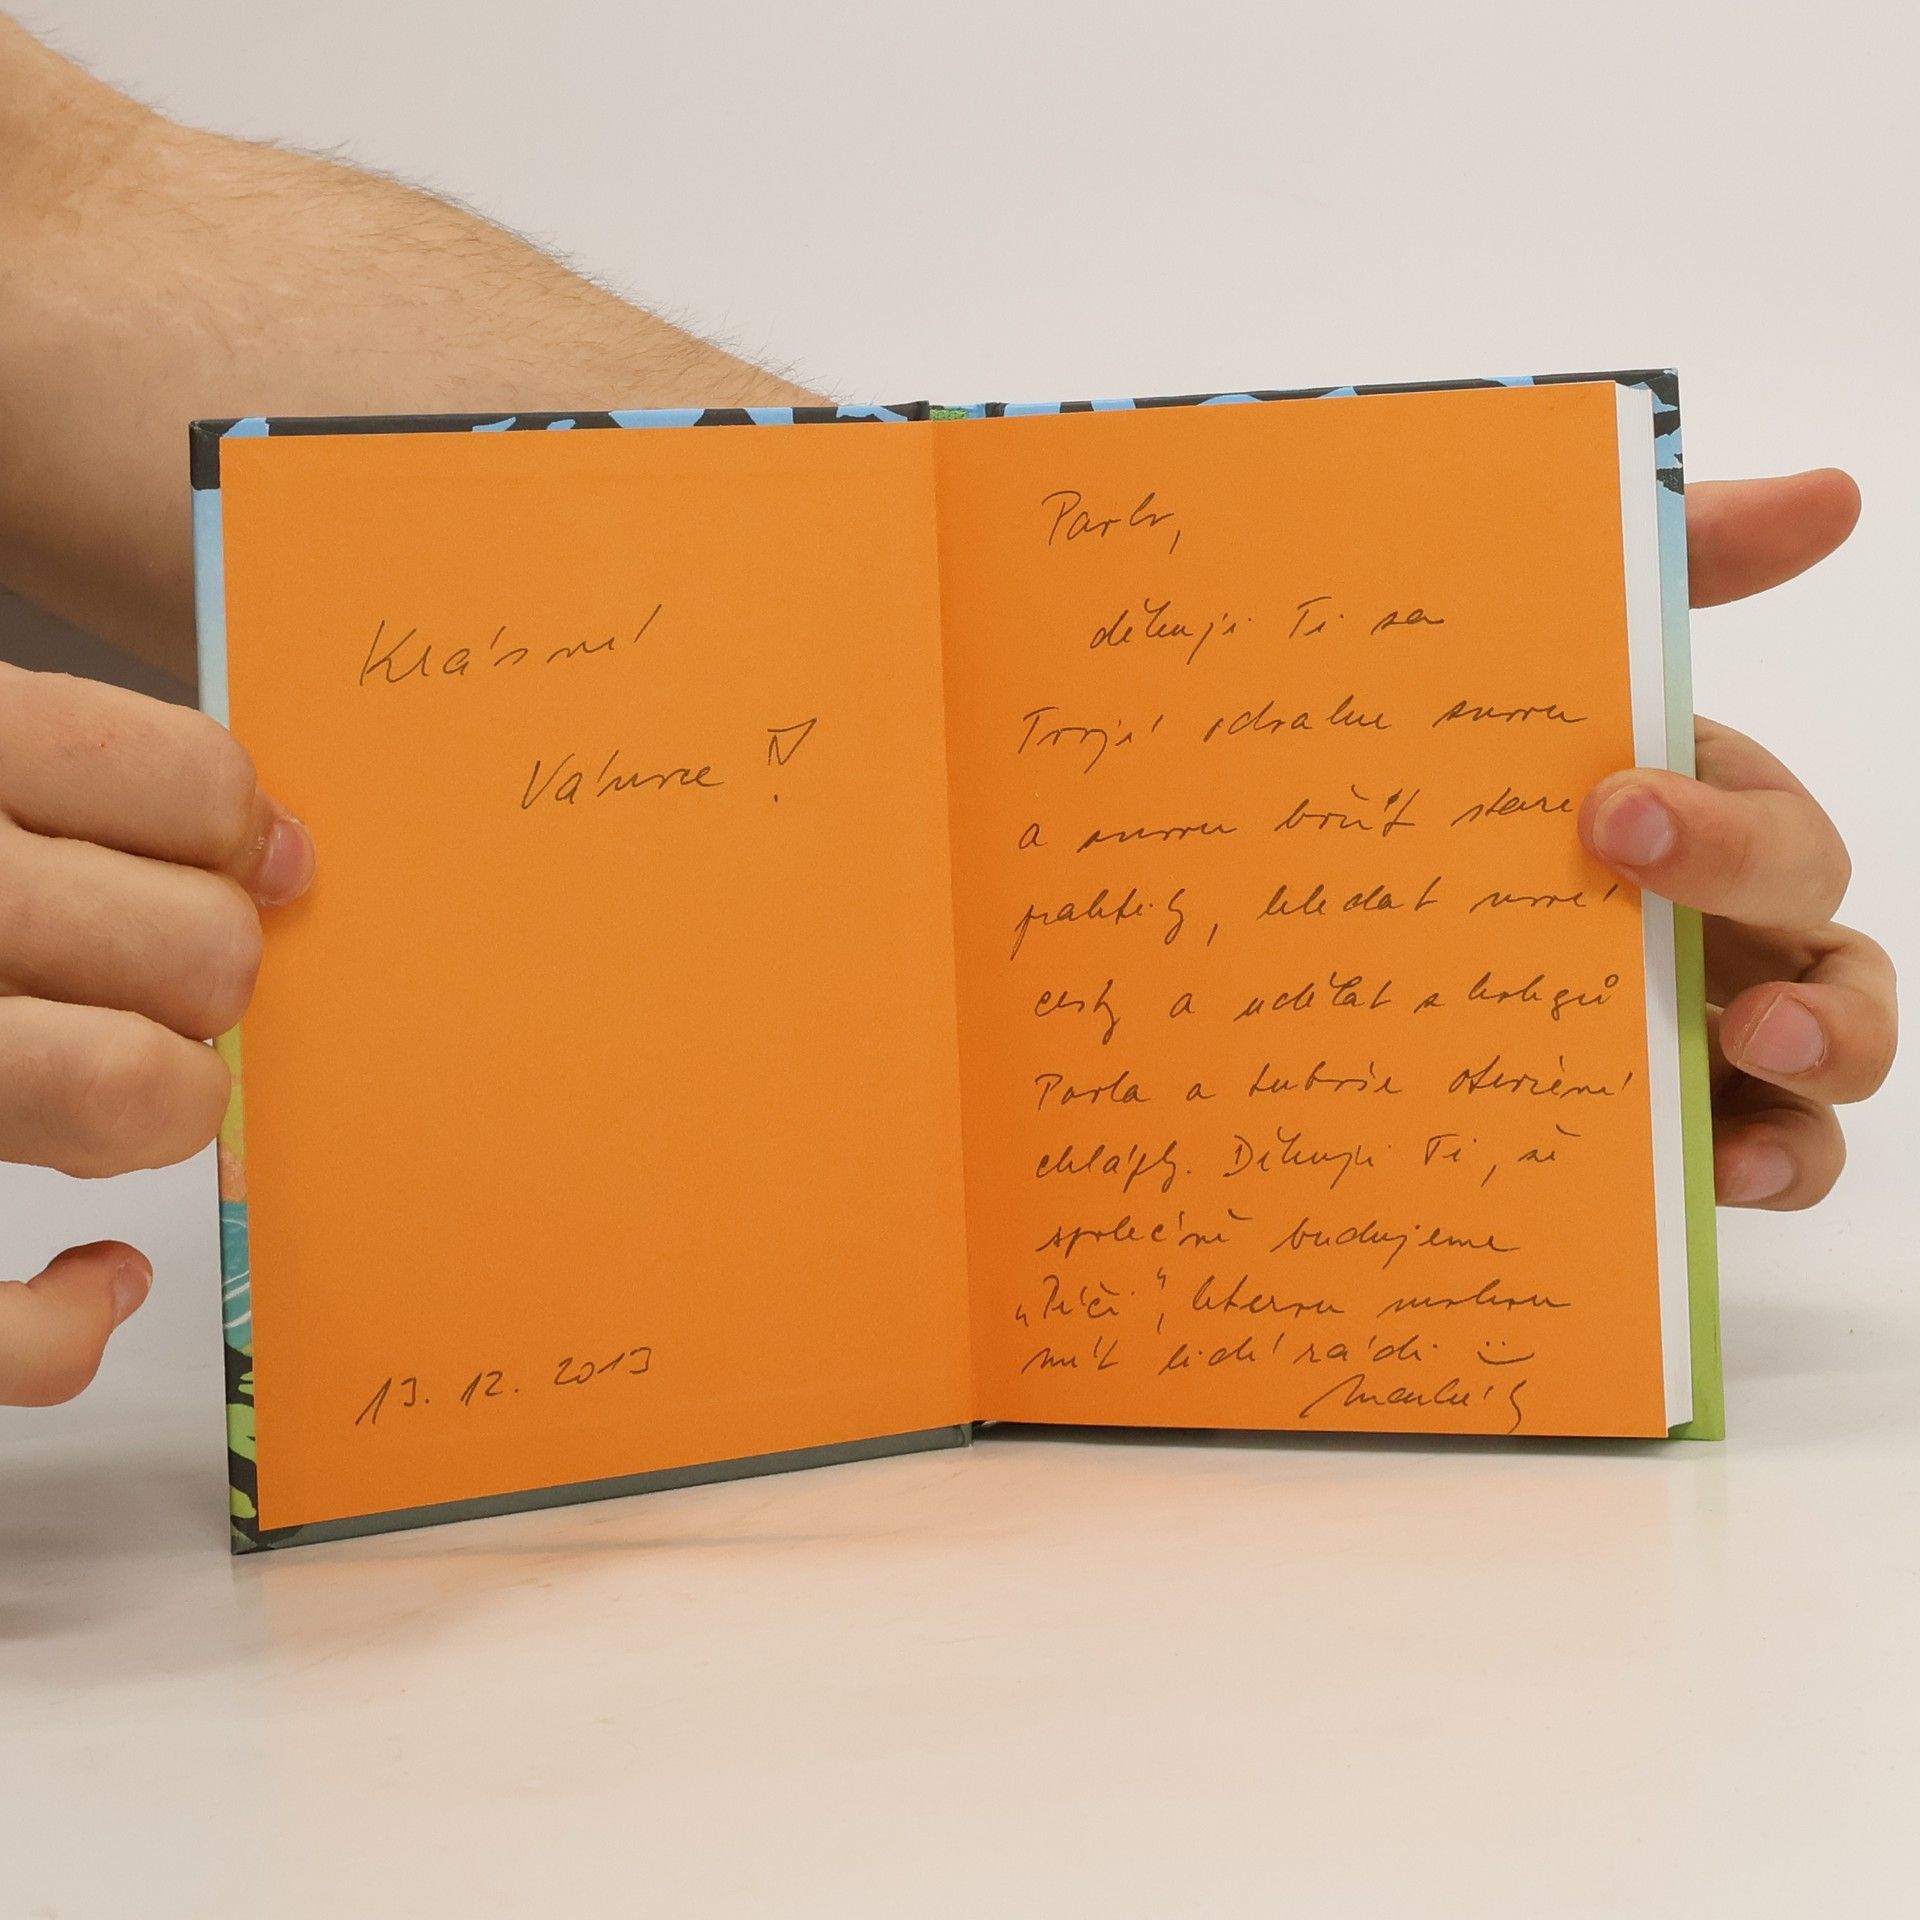 Krásné
Vánoce !
13. 12. 2013
Pavle,
děkuji Ti za
Tvoji odvahu znovu
a znovu bořit staré
praktiky, hledat nové
cesty a udělat z kolegů
Pavla a otevřené
chlápky. Děkuji Ti, že
společně budujeme
„Péči", kterou mohou
mít lidé rádi :)